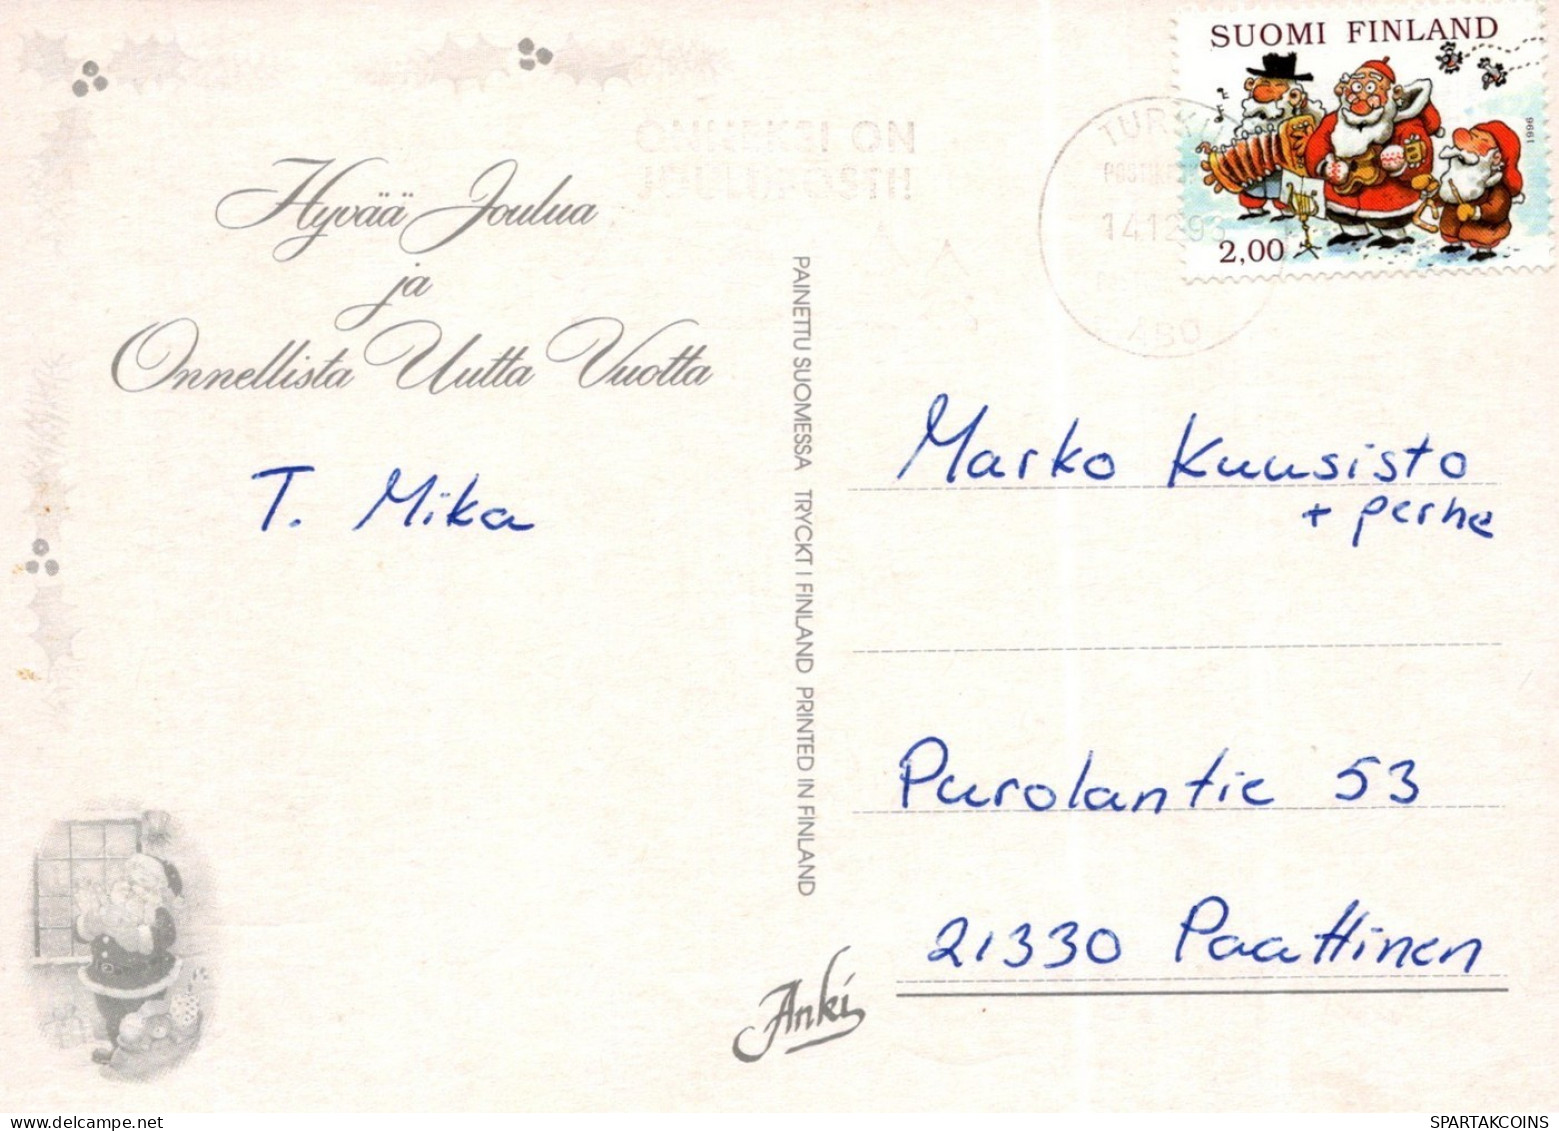 SUOMI FINLAND
1996
2,00
TURKU
14.12.96
ÅBO
ONNEKSI ON
JOULUPOSTI!
Hyvää Joulua
ja
Onnellista Uutta Vuotta
T. Mika
PAINETTU SUOMESSA TRYCKT I FINLAND PRINTED IN FINLAND
Marko Kuusisto
+ perhe
Purolantie 53
21330 Paattinen
Anki
SPARTAKCOINS